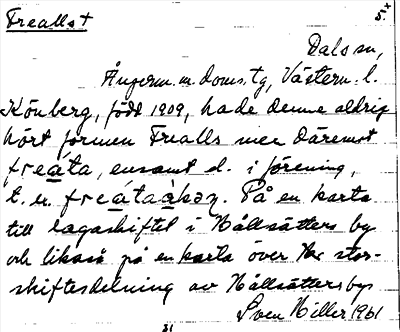 Frealls +
5.x
Dals sn,
Ångerm. m. doms. tg, Västern. l.
Könberg, född 1909, hade denne aldrig
hört formen Frealls men däremot
freáta, ensamt el. i förening,
t. ex. freátaàkəṛ. På en karta
till lagaskiftet i Hållsätters by
och likaså på en karta över stor-
skiftesdelning av Hållsätters by
Sven Hiller 1961
31